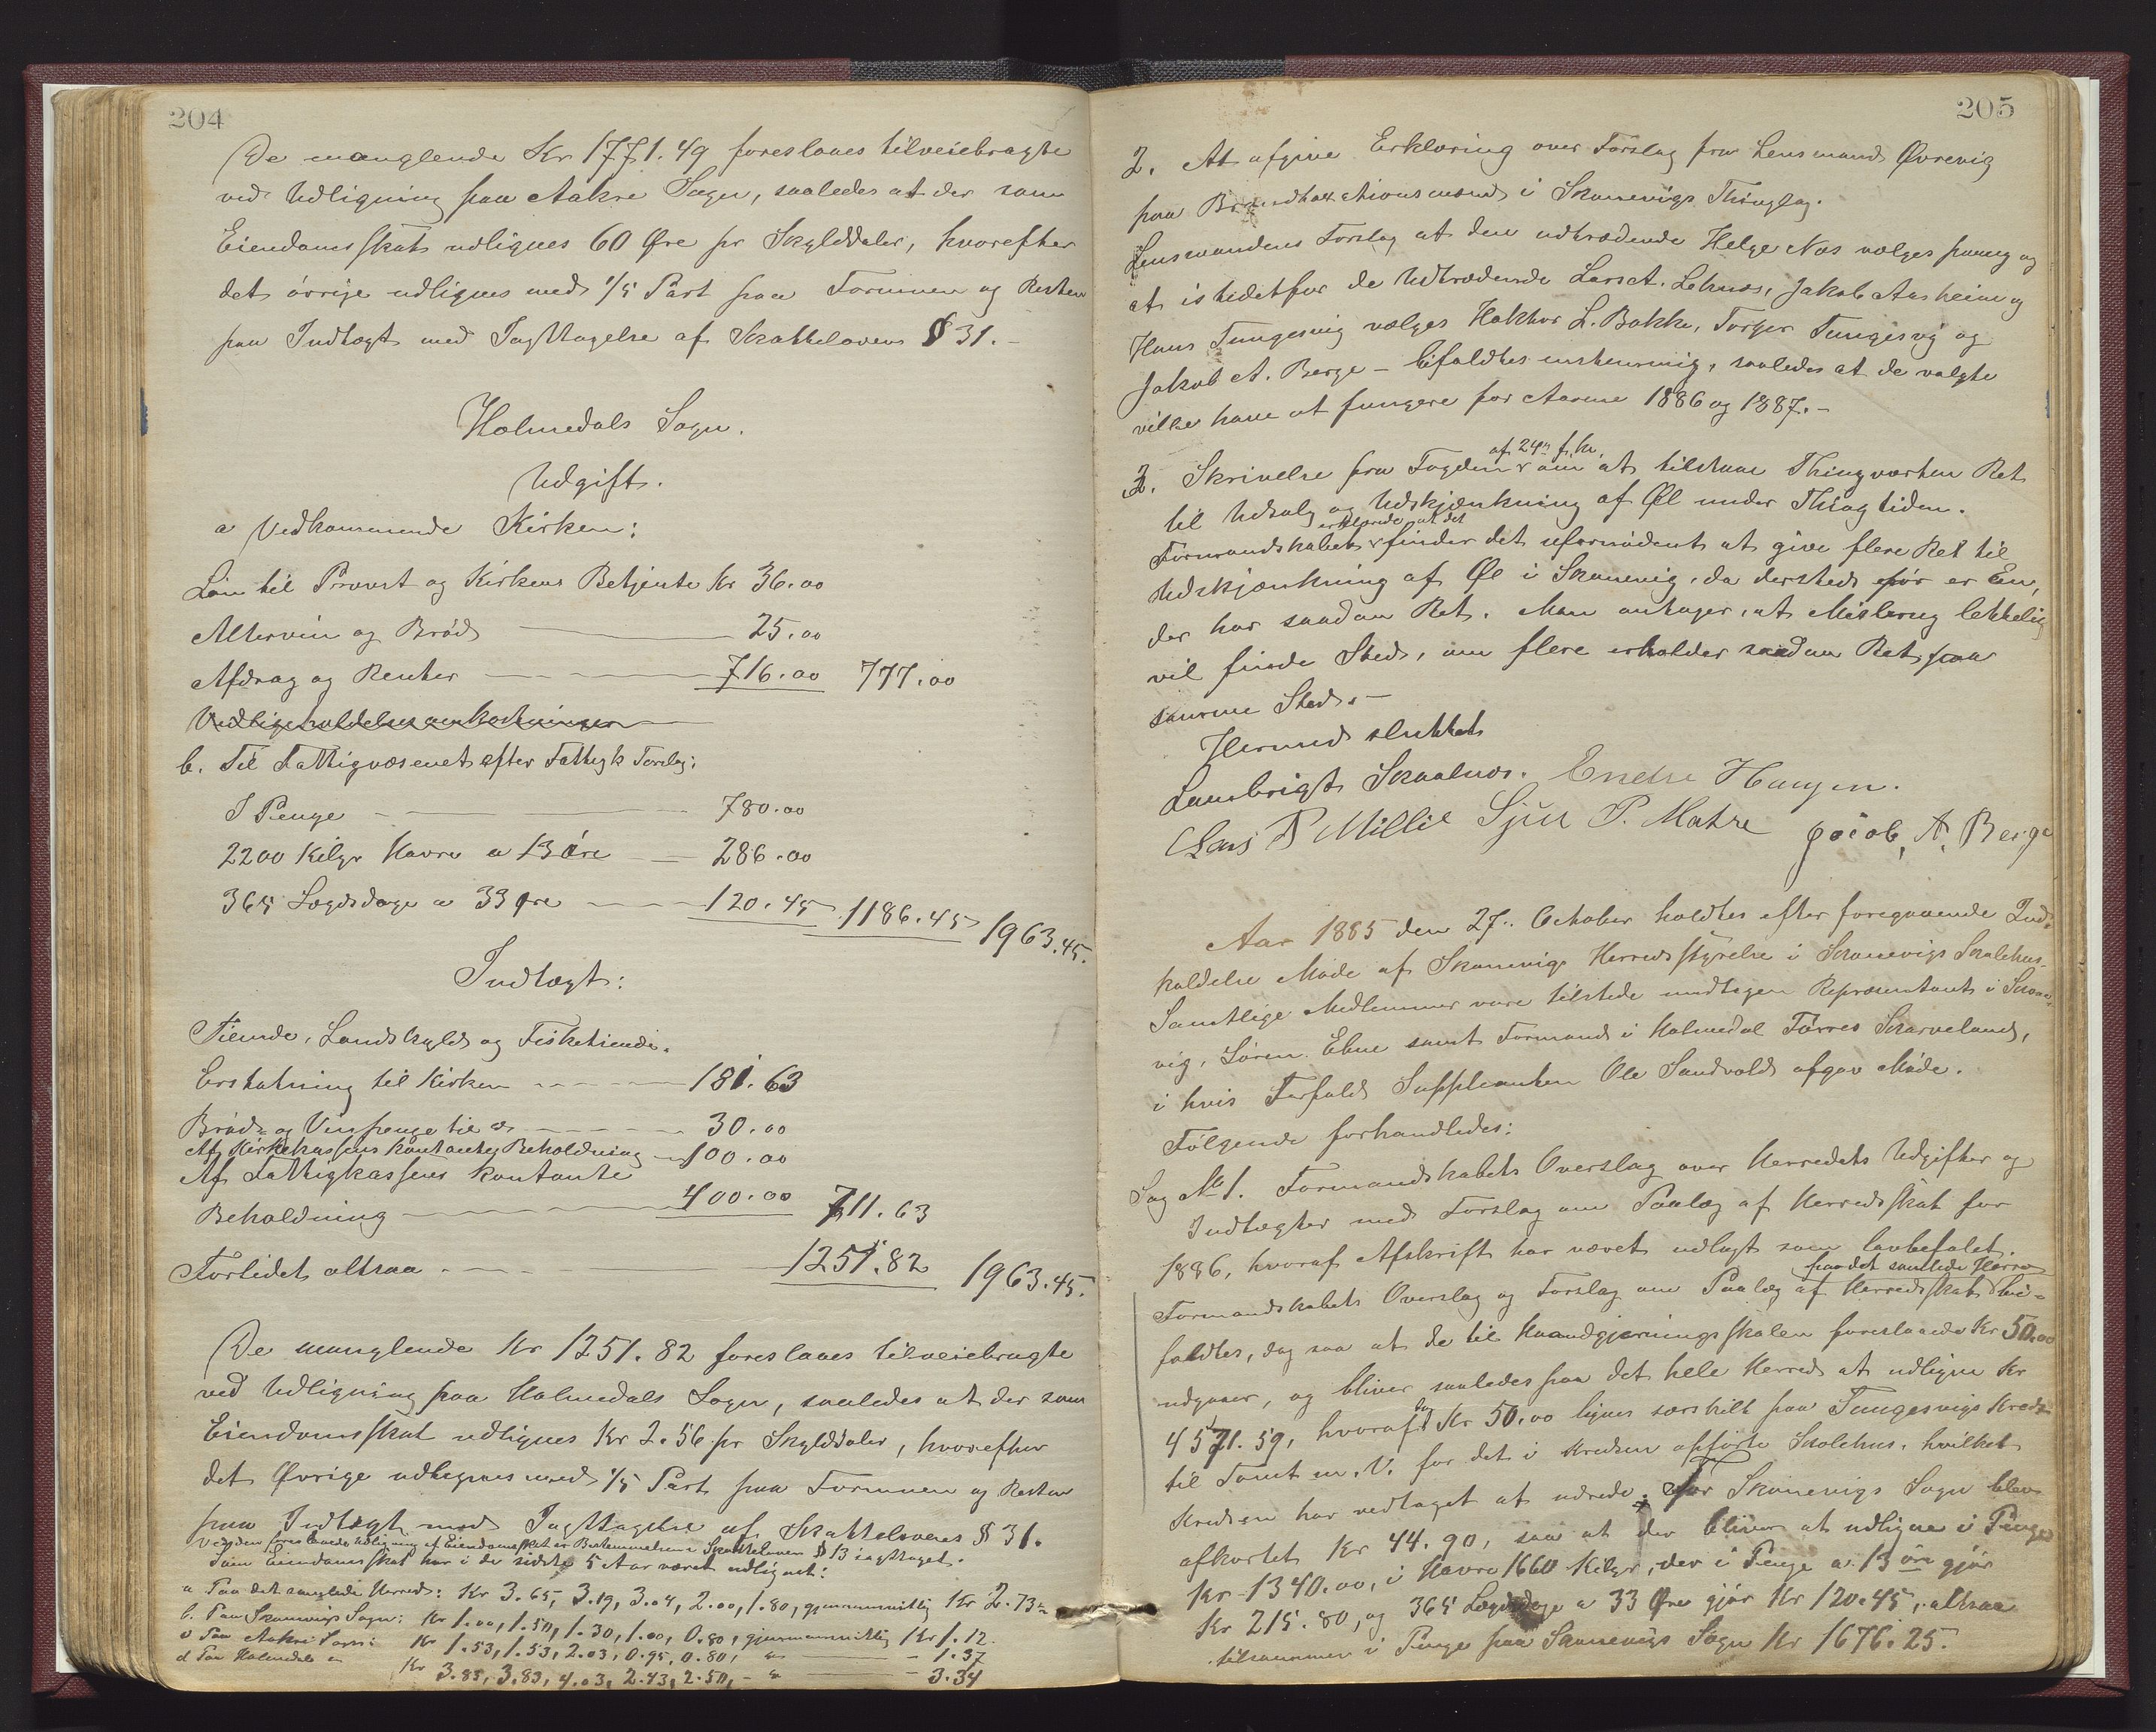 204
De manglende Kr 1771.49 foreslaaes tilveiebragte
ved Udligning paa Aakre Sogn, saaledes at der som
Eiendomsskat udlignes 60 Øre pr Skylddaler, hvorefter
det övrige udlignes med 1/5 Part paa Formuen og Resten
paa Indtægt med Iagttagelse af Skattelovens § 31.-
Holmedals Sogn.
Udgift.
a Vedkommende Kirken:
Løn til Provst og Kirkens Betjente Kr 36.00
Altervin og Bröd 25.00
Afdrag og Renter 716.00 777.00
Vedligeholdelsesomkostninger
b. Til Fattigvæsenet efter Fattigk Forslag:
I Penge 780.00
2200 Kilgr Havre a 13 öre 286.00
365 Lægdsdage a 33 Øre 120.45 1186.45 1963.45.
Indtægt:
Tiende, Landskyld og Fisketiende.
Erstatning til Kirken 181.63
Bröd= og Vinpenge til do 30.00
Af Kirkekassens kontante Beholdning 100.00
Af Fattigkassens kontante
Beholdning 400.00 711.63
Forlidet altsaa 1251.82 1963.45.
De manglende Kr 1251.82 foreslaaes tilveiebragte
ved Udligning paa Holmedals Sogn, saaledes at der som
Eiendomsskat udlignes Kr 2.56 pr Skylddaler, hvorefter
det Øvrige udlignes med 1/5 Part paa Formuen og Resten
paa Indtægt med Iagttagelse af Skattelovens § 31.
Ved den foreslaaede Udligning af Eiendomsskat er Bestemmelsen i Skatteloven § 13 iagttaget.
Som Eiendomsskat har i de sidste 5 Aar været udlignet:
a Paa det samlede Herred: Kr 3.65, 3.19, 3.04, 2.00, 1.80, gjennemsnitlig Kr 2.73
b. Paa Skonevigs Sogn: Kr 1.00, 1.50, 1.30, 1.00, 0.80, gjennemsnitlig Kr 1.12.
c Paa Aakre Sogn: Kr 1.53, 1.53, 2.03, 0.95, 0.80, " - 1.37
d Paa Holmedals " Kr 3.85, 3.83, 4.03, 2.43, 2.50, - " - 3.34
205
2. At afgive Erklæring over Forslag fra Lensmand Øvrevig
paa Brandtaxationsmænd i Skonevigs Thinglag.
Lensmandens Forslag at den udtrædende Helge Næs vælges paany og
at istedetfor de Udtrædende Lars A. Leknes, Jakob Aasheim og
Hans Tungesvig vælges Haktor L. Bakke, Torger Tungesvig og
Jakob A. Berge - bifaldtes enstemmig, saaledes at de valgte
ville have at fungere for Aarene 1886 og 1887.-
af 24de f. M.
3. Skrivelse fra Fogden om at tilstaae Thingværten Ret
til Udsalg og Udskjænkning af Øl under Thingtiden.
erklærede at det
Formandskabet finder det ufornödent at give flere Ret til
Udskjænkning af Øl i Skonevig, da dersteds för er Een,
der har saadan Ret. Man antager, at Misbrug lettelig
vil finde Sted, om flere erholder saadan Ret paa
samme Sted.-
Hermed sluttet
Lambrigt Skaalnes. Endre Haugen.
Lars P Millie Sjur P. Matre Jacob, A, Berge
Aar 1885 den 27. October holdtes efter foregaaende Ind=
kaldelse Möde af Skonevigs Herredsstyrelse i Skonevigs Skolehus.
Samtlige Medlemmer vare tilstede undtagen Repræsentant i Skone=
vig, Sören Ebne samt Formand i Holmedal Torres Skarveland,
i hvis Forfald Suppleanten Ole Sandvold afgav Möde.
Fölgende forhandledes:
Sag No 1. Formandskabets Overslag over Herredets Udgifter og
Indtægter med Forslag om Paalæg af Herredsskat for
1886, hvoraf Afskrift har været udlagt som lovbefalet.
paa det samlede Herred
Formandskabets Overslag og Forslag om Paalæg af Herredsskat bi=
faldtes, dog saa at de til Haandgjerningsskolen foreslaaede Kr 50.00
udgaaer, og bliver saaledes paa det hele Herred at udligne Kr
4571.59, hvoraf dog Kr 50.00 lignes særskilt paa Tungesvigs Kreds
til Tomt m. V. for det i Kredsen opförte Skolehus, hvilket
Kredsen har vedtaget at udrede. For Skonevigs Sogn blev
afkortet Kr 44.90, saa at der bliver at udligne i Penge
Kr 1340.00, i Havre 1660 Kilgr, der i Penge a 13 öre gjör
Kr 215.80, og 365 Lægdsdage a 33 Øre gjör Kr 120.45, altsaa
tilsammen i Penge paa Skonevigs Sogn Kr 1676.25.